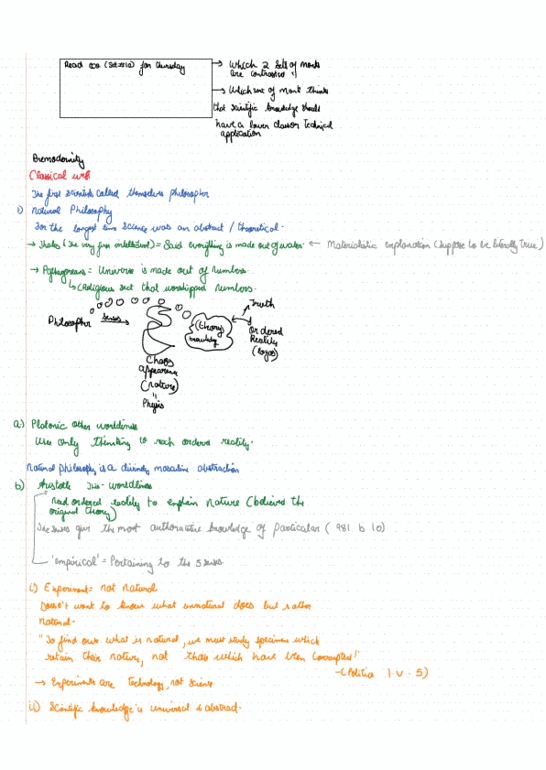 Read for Thursday
→ Which 2 sets of monks
are contrasted
→ Which set of monk thinks
that scientific knowledge should
have a lower class or Technical
application
Premodernity
Classical
The first scientists called themselves philosopher
i) Natural Philosophy
For the longest time science was an abstract / theoretical.
→ Thales (The very first intellectual) = Said everything is made out of water. ← Materialistic explanation (suppose to be literally true)
→ Pythagoreans = Universe is made out of numbers.
↳ (Religious sect that worshipped numbers.
Truth
Philosopher senses → (theory) knowledge Ordered
Reality
(logos)
Chaos
appearance
(nature)
"
Physis
a) Platonic other worldliness
Use only thinking to reach ordered reality.
Natural philosophy is a divinely masculine abstraction
b) Aristotle This-worldliness
Need ordered reality to explain nature (believes the
original theory)
The senses give the most authoritative knowledge of particulars (981 b 10)
'empirical' = Pertaining to the 5 senses.
i) Experiment = not natural
Doesn't want to know what unnatural does but rather
natural.
"To find out what is natural, we must study specimens which
retain their nature, not those which have been corrupted!"
-(Politics I.V.5)
→ Experiments are Technology, not science
ii) Scientific knowledge is universal & abstract.